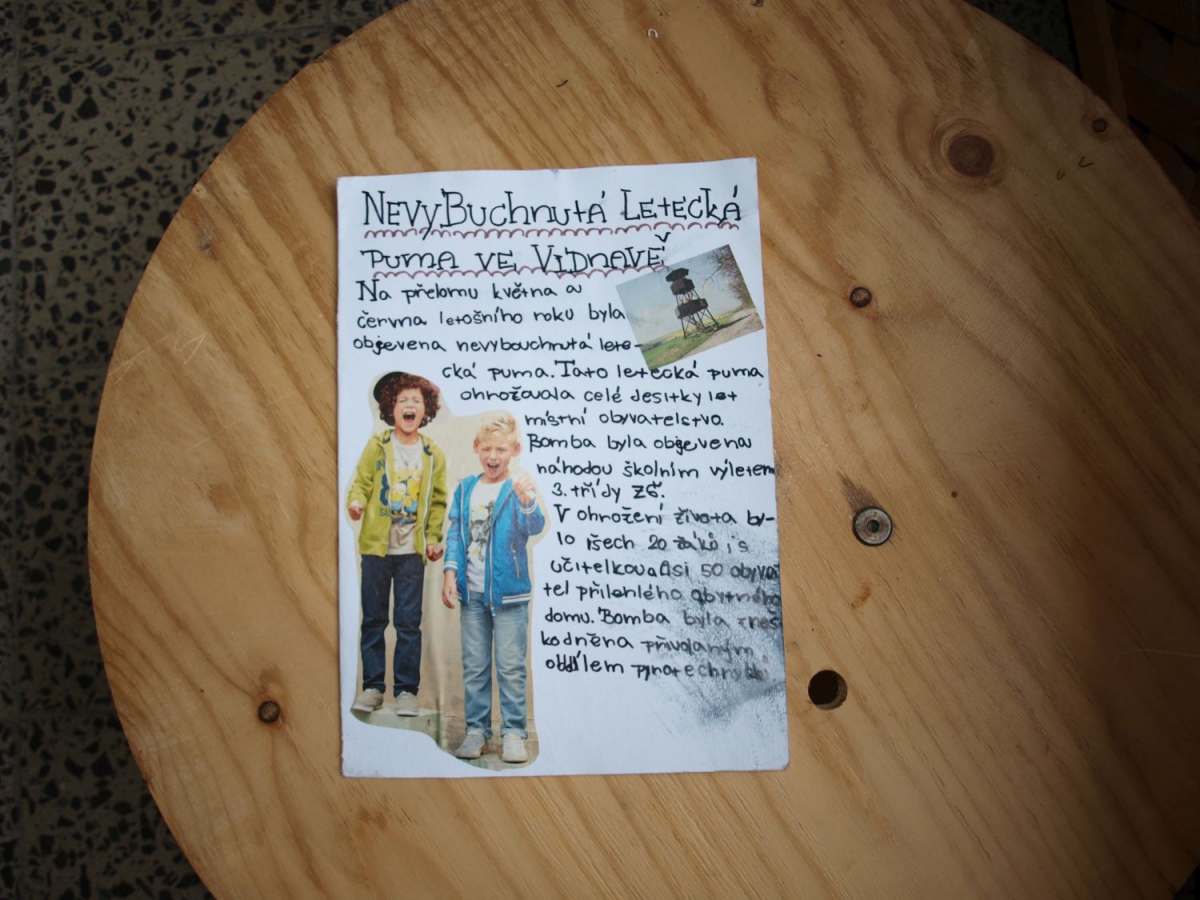 NevyBuchnutá Letecká
puma ve Vidnavě
Na přelomu května a
června letošního roku byla
objevena nevybouchnutá lete-
cká puma. Tato letecká puma
ohrožovala celé desítky let
místní obyvatelstvo.
Bomba byla objevena
náhodou školním výletem
3. třídy ZŠ.
V ohrožení života by-
lo všech 20 žáků i s
učitelkou Asi 50 obyva
tel přilehlého obytného
domu. Bomba byla znes
kodněna přivolaným
oddílem pyrotechniků